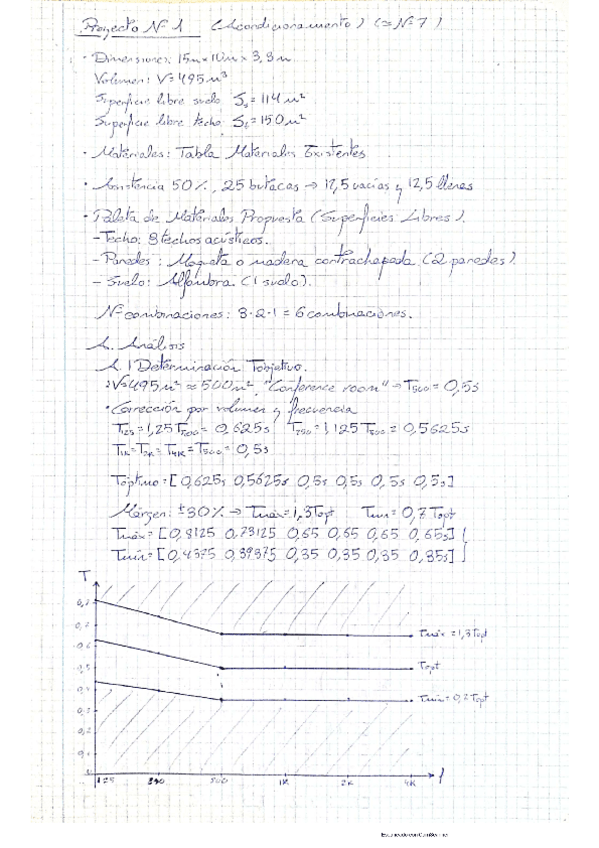 Proyecto Nº 1 (Acondicionamiento) (≈Nº7)
· Dimensiones: 15m x 10m x 3,3m
Volumen: V=495m³
Superficie libre suelo Ss=114m²
Superficie libre techo St=150m²
· Materiales: Tabla Materiales Existentes
· Asistencia 50%, 25 butacas → 12,5 vacías y 12,5 llenas
· Paleta de Materiales Propuesta (Superficies Libres).
- Techo: 3 techos acústicos.
- Paredes: Moqueta o madera contrachapada (2 paredes).
- Suelo: Alfombra (1 suelo).
Nº combinaciones: 3·2·1 = 6 combinaciones.
A. Análisis
A.1 Determinación Tobjetivo.
V=495m³ ≈ 500m³, "Conference room" → T500 = 0,5s
· Corrección por volumen y frecuencia
T125 = 1,25 T500 = 0,625s T250 = 1,125 T500 = 0,5625s
T1K = T2K = T4K = T500 = 0,5s
Tóptimo = [0,625s 0,5625s 0,5s 0,5s 0,5s 0,5s]
Márgen: ±30% → Tmáx = 1,3Topt Tmin = 0,7Topt
Tmáx = [0,8125 0,73125 0,65 0,65 0,65 0,65s]
Tmín = [0,4375 0,39375 0,35 0,35 0,35 0,35s]
T
Tmáx = 1,3Topt
0,5
Topt
Tmín = 0,7Topt
0,3
0,2
0,1
125 500 1K 2K 4K f
Escaneado con CamScanner